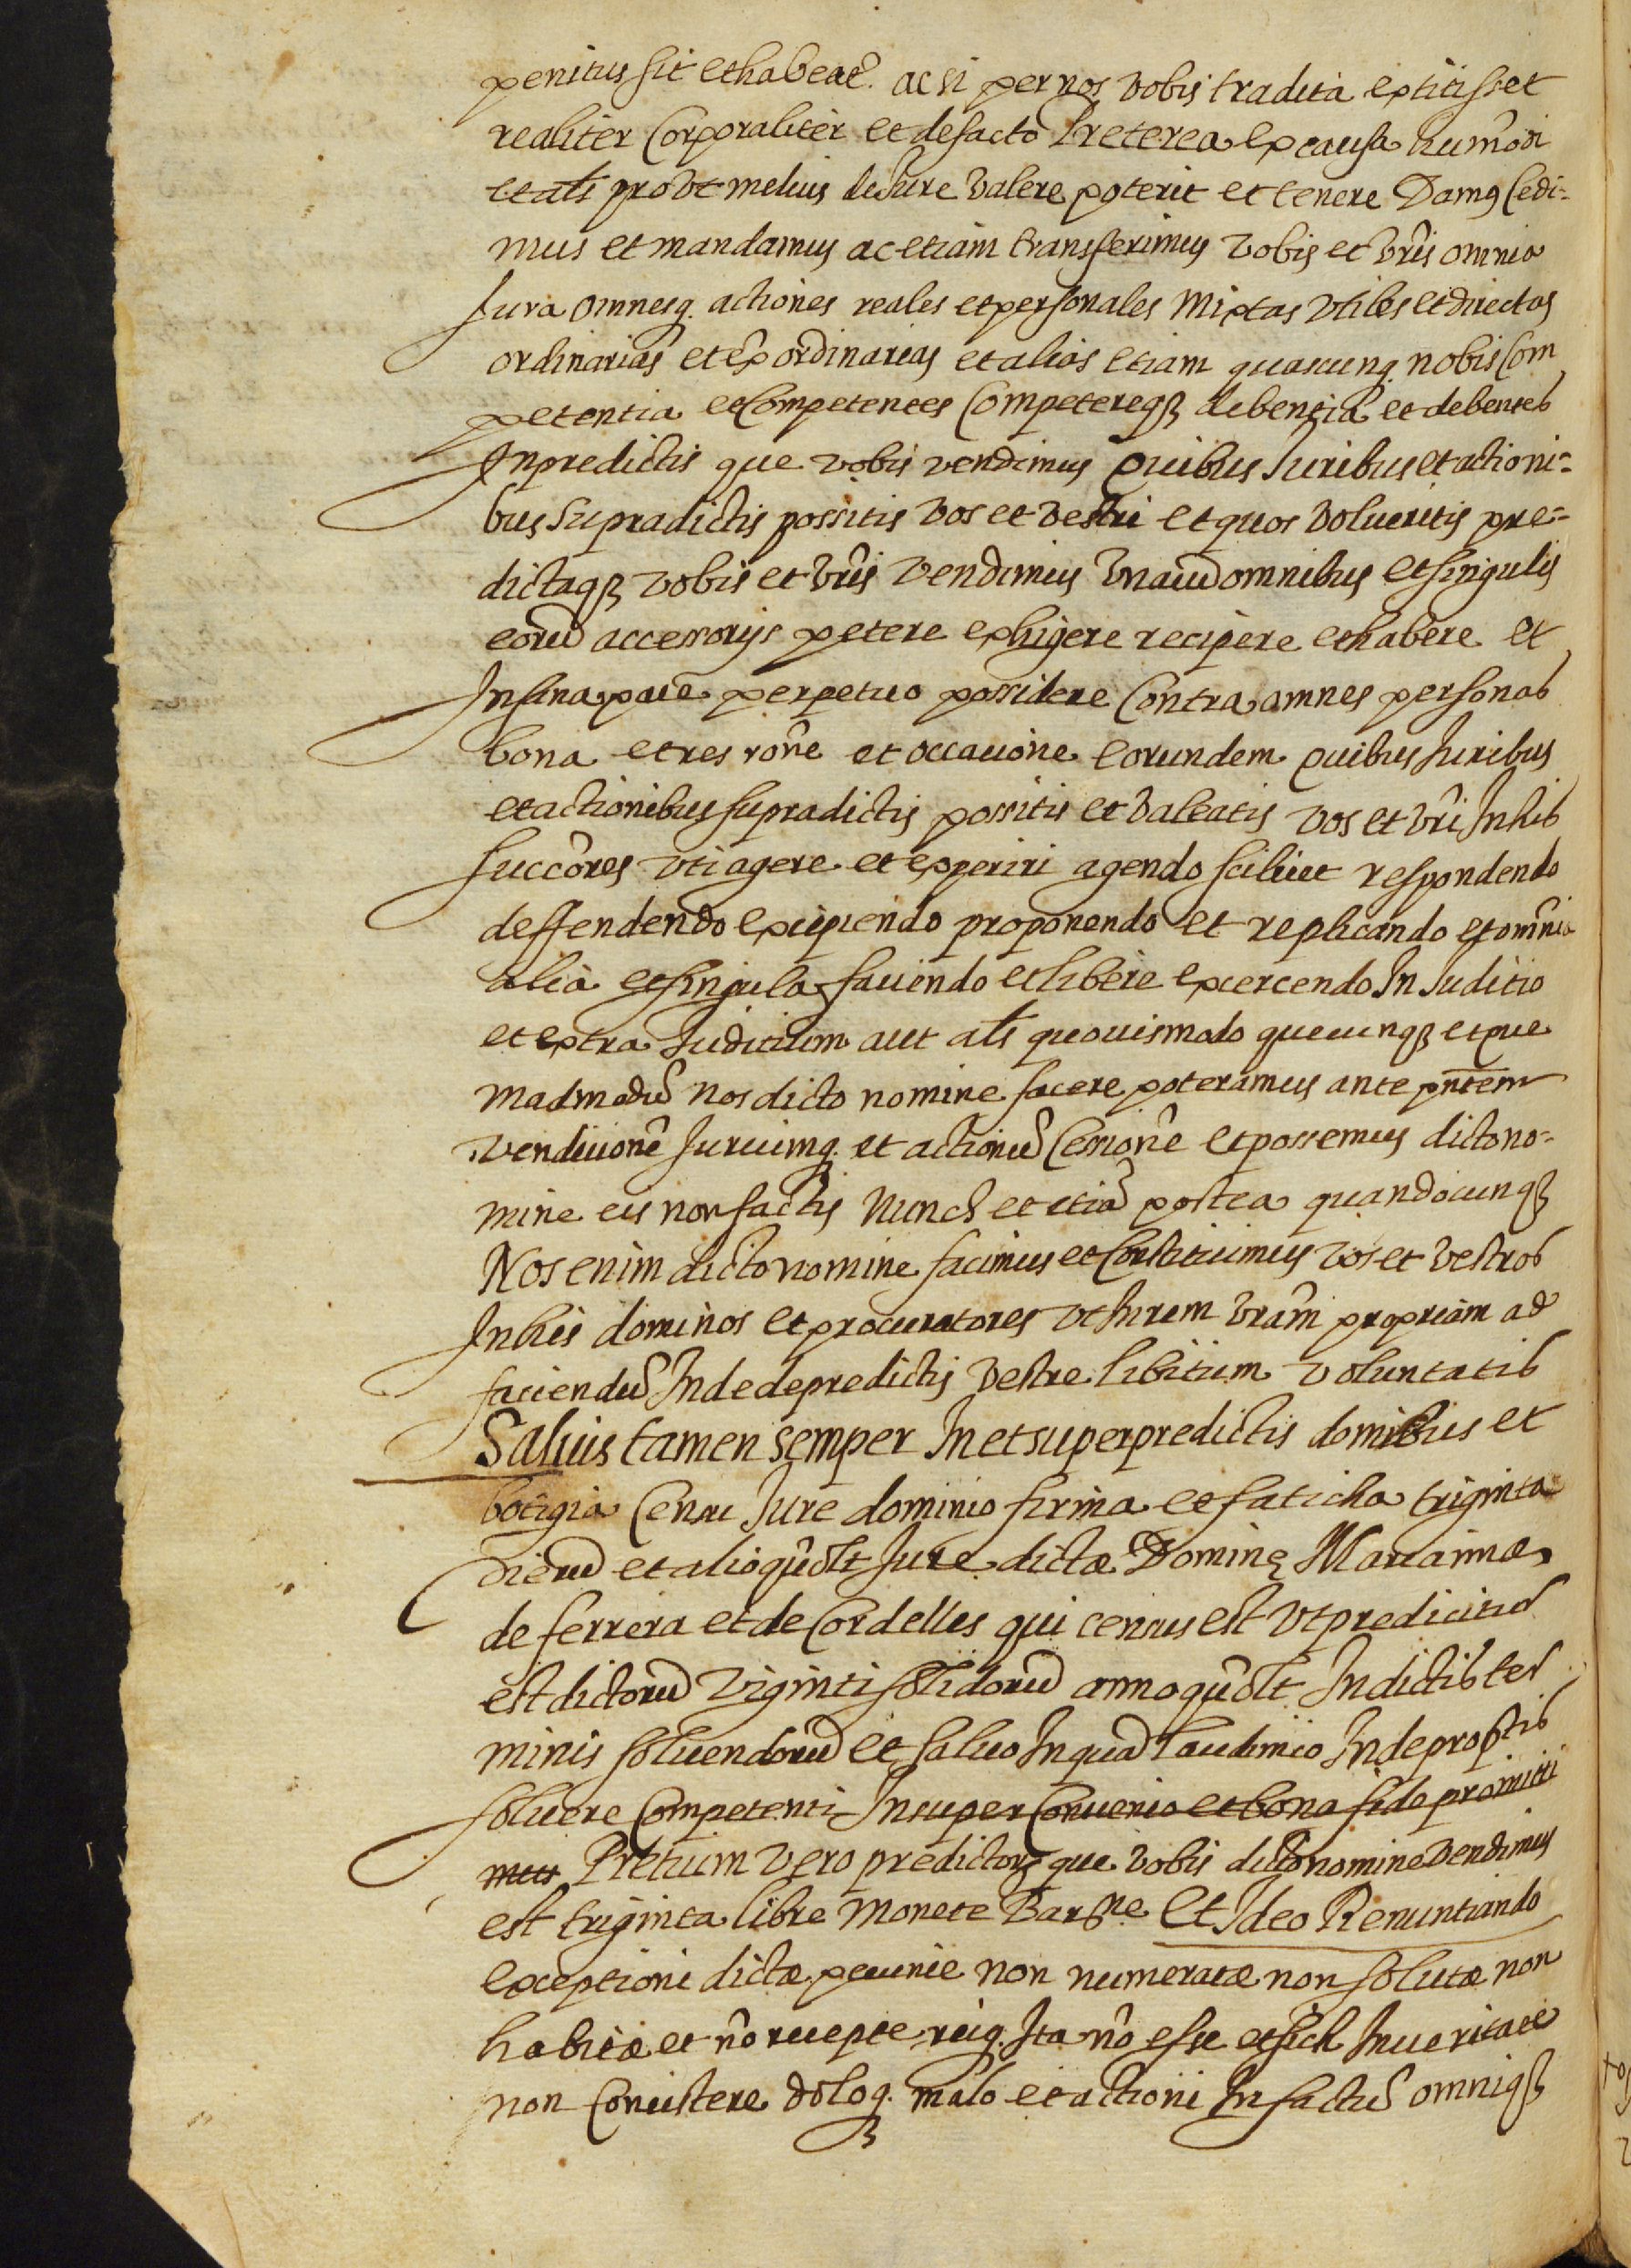 penitus sit et habeat᷑. ac si per nos vobis tradita extitisset
realiter Corporaliter et de facto Preterea ex causa hum̃odi
et als̃ provt melius de Jure valere poterit et tenere Damꝯ Cedi-
mus et mandamus ac etiam transferimus vobis et vr̃is omnia
Jura omnesq. actiones reales et personales Mixtas vtiles et directas
ordinarias et ex̃ordinarias et alias etiam quascunq. nobis Com
petentia et Competentes Competereqꝫ debentia et debentes
In predictis que vobis vendimus Quibus Juribus et actioni-
bus Supradictis possitis vos et vestri et quos volueritis pre-
dictaqꝫ vobis et vr̃is vendimus vnacũ omnibus et singulis
eorũ accessorijs petere exhigere recipere et habere et
In sana pace perpetuo possidere Contra omnes personas
bona et res rõne et occasione eorundem Quibus Juribus
et actionibus supradictis possitis et valeatis vos et vr̃i In his
succõres vti agere et experiri agendo scilicet respondendo
deffendendo excipiendo proponendo et replicando et omnia
alia et singula faciendo et libere exercendo In Juditio
et extra Juditium aut als̃ quouismodo quecunqꝫ et que
madmodũ nos dicto nomine facere poteramus ante pñtem
vendicionẽ Juriumq. et actionũ Cessionẽ et possemus dicto no-
mine eis non factis Nunch et etiã postea quandocunqꝫ
Nos enim dicto nomine facimus et Constituimus vos et vestros
In his dominos et procuratores vt In rem vr̃am propriam ad
faciendũ Inde de predictis vestre libitum voluntatis
Saluis tamen semper In et super predictis domibus et
botigia Censu Jure dominio firma et faticha triginta
dierũ et alio quõlt Jure dictæ Dominę Mariannæ
de ferrera et de Cordelles qui census est vt predicitur
est dictorũ viginti solidorũ anno quõlt In dictis ter
minis soluendorũ et saluo In quã Laudimio Inde pro pstis
soluere Competenti Insuper Conuenio et bona fide promitti
mus Pretium vero predictorꝫ que vobis dicto nomine vendimus
est triginta libre Monete Barñe Et Ideo Renuntiando
exceptioni dictæ pecunie non numeratæ non solutæ non
habitæ et nõ recepte reiq. Ita nõ esse et sich In ueritate
non Consistere doloq. malo et actioni In factũ omniqꝫ